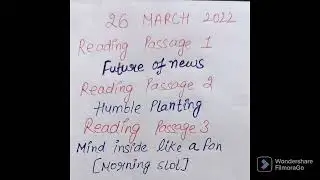 26 MARCH 2022
Reading Passage 1
Future of news
Reading Passage 2
Humble Planting
Reading Passage 3
Mind inside like a Pan
[Morning slot]
Wondershare
FilmoraGo